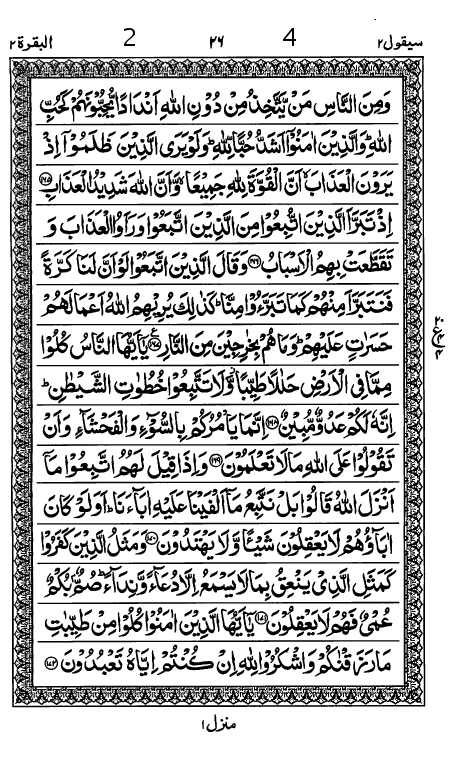 سيقول٢ 4 ٢٦ 2 البقرة٢
وَمِنَ النَّاسِ مَنْ يَّتَّخِذُ مِنْ دُوْنِ اللّٰهِ اَنْدَادًا يُّحِبُّوْنَهُمْ كَحُبِّ
اللّٰهِ ؕ وَالَّذِيْنَ اٰمَنُوْۤا اَشَدُّ حُبًّا لِّلّٰهِ ؕ وَلَوْ يَرَى الَّذِيْنَ ظَلَمُوْۤا اِذْ
يَرَوْنَ الْعَذَابَ ۙ اَنَّ الْقُوَّةَ لِلّٰهِ جَمِيْعًا ۙ وَّاَنَّ اللّٰهَ شَدِيْدُ الْعَذَابِ ﴿۱۶۵﴾
اِذْ تَبَرَّاَ الَّذِيْنَ اتُّبِعُوْا مِنَ الَّذِيْنَ اتَّبَعُوْا وَرَاَوُا الْعَذَابَ وَ
تَقَطَّعَتْ بِهِمُ الْاَسْبَابُ ﴿۱۶۶﴾ وَقَالَ الَّذِيْنَ اتَّبَعُوْا لَوْ اَنَّ لَنَا كَرَّةً
فَنَتَبَرَّاَ مِنْهُمْ كَمَا تَبَرَّءُوْا مِنَّا ؕ كَذٰلِكَ يُرِيْهِمُ اللّٰهُ اَعْمَالَهُمْ
حَسَرٰتٍ عَلَيْهِمْ ؕ وَمَا هُمْ بِخٰرِجِيْنَ مِنَ النَّارِ ﴿۱۶۷﴾ يٰۤاَيُّهَا النَّاسُ كُلُوْا
مِمَّا فِى الْاَرْضِ حَلٰلًا طَيِّبًا ۖ وَّلَا تَتَّبِعُوْا خُطُوٰتِ الشَّيْطٰنِ ؕ
اِنَّهٗ لَكُمْ عَدُوٌّ مُّبِيْنٌ ﴿۱۶۸﴾ اِنَّمَا يَاْمُرُكُمْ بِالسُّوْٓءِ وَالْفَحْشَآءِ وَاَنْ
تَقُوْلُوْا عَلَى اللّٰهِ مَا لَا تَعْلَمُوْنَ ﴿۱۶۹﴾ وَاِذَا قِيْلَ لَهُمُ اتَّبِعُوْا مَاۤ
اَنْزَلَ اللّٰهُ قَالُوْا بَلْ نَتَّبِعُ مَاۤ اَلْفَيْنَا عَلَيْهِ اٰبَآءَنَا ؕ اَوَلَوْ كَانَ
اٰبَآؤُهُمْ لَا يَعْقِلُوْنَ شَيْـًٔا وَّلَا يَهْتَدُوْنَ ﴿۱۷۰﴾ وَمَثَلُ الَّذِيْنَ كَفَرُوْا
كَمَثَلِ الَّذِىْ يَنْعِقُ بِمَا لَا يَسْمَعُ اِلَّا دُعَآءً وَّنِدَآءً ؕ صُمٌّۢ بُكْمٌ
عُمْىٌ فَهُمْ لَا يَعْقِلُوْنَ ﴿۱۷۱﴾ يٰۤاَيُّهَا الَّذِيْنَ اٰمَنُوْا كُلُوْا مِنْ طَيِّبٰتِ
مَا رَزَقْنٰكُمْ وَاشْكُرُوْا لِلّٰهِ اِنْ كُنْتُمْ اِيَّاهُ تَعْبُدُوْنَ ﴿۱۷۲﴾
منزل۱